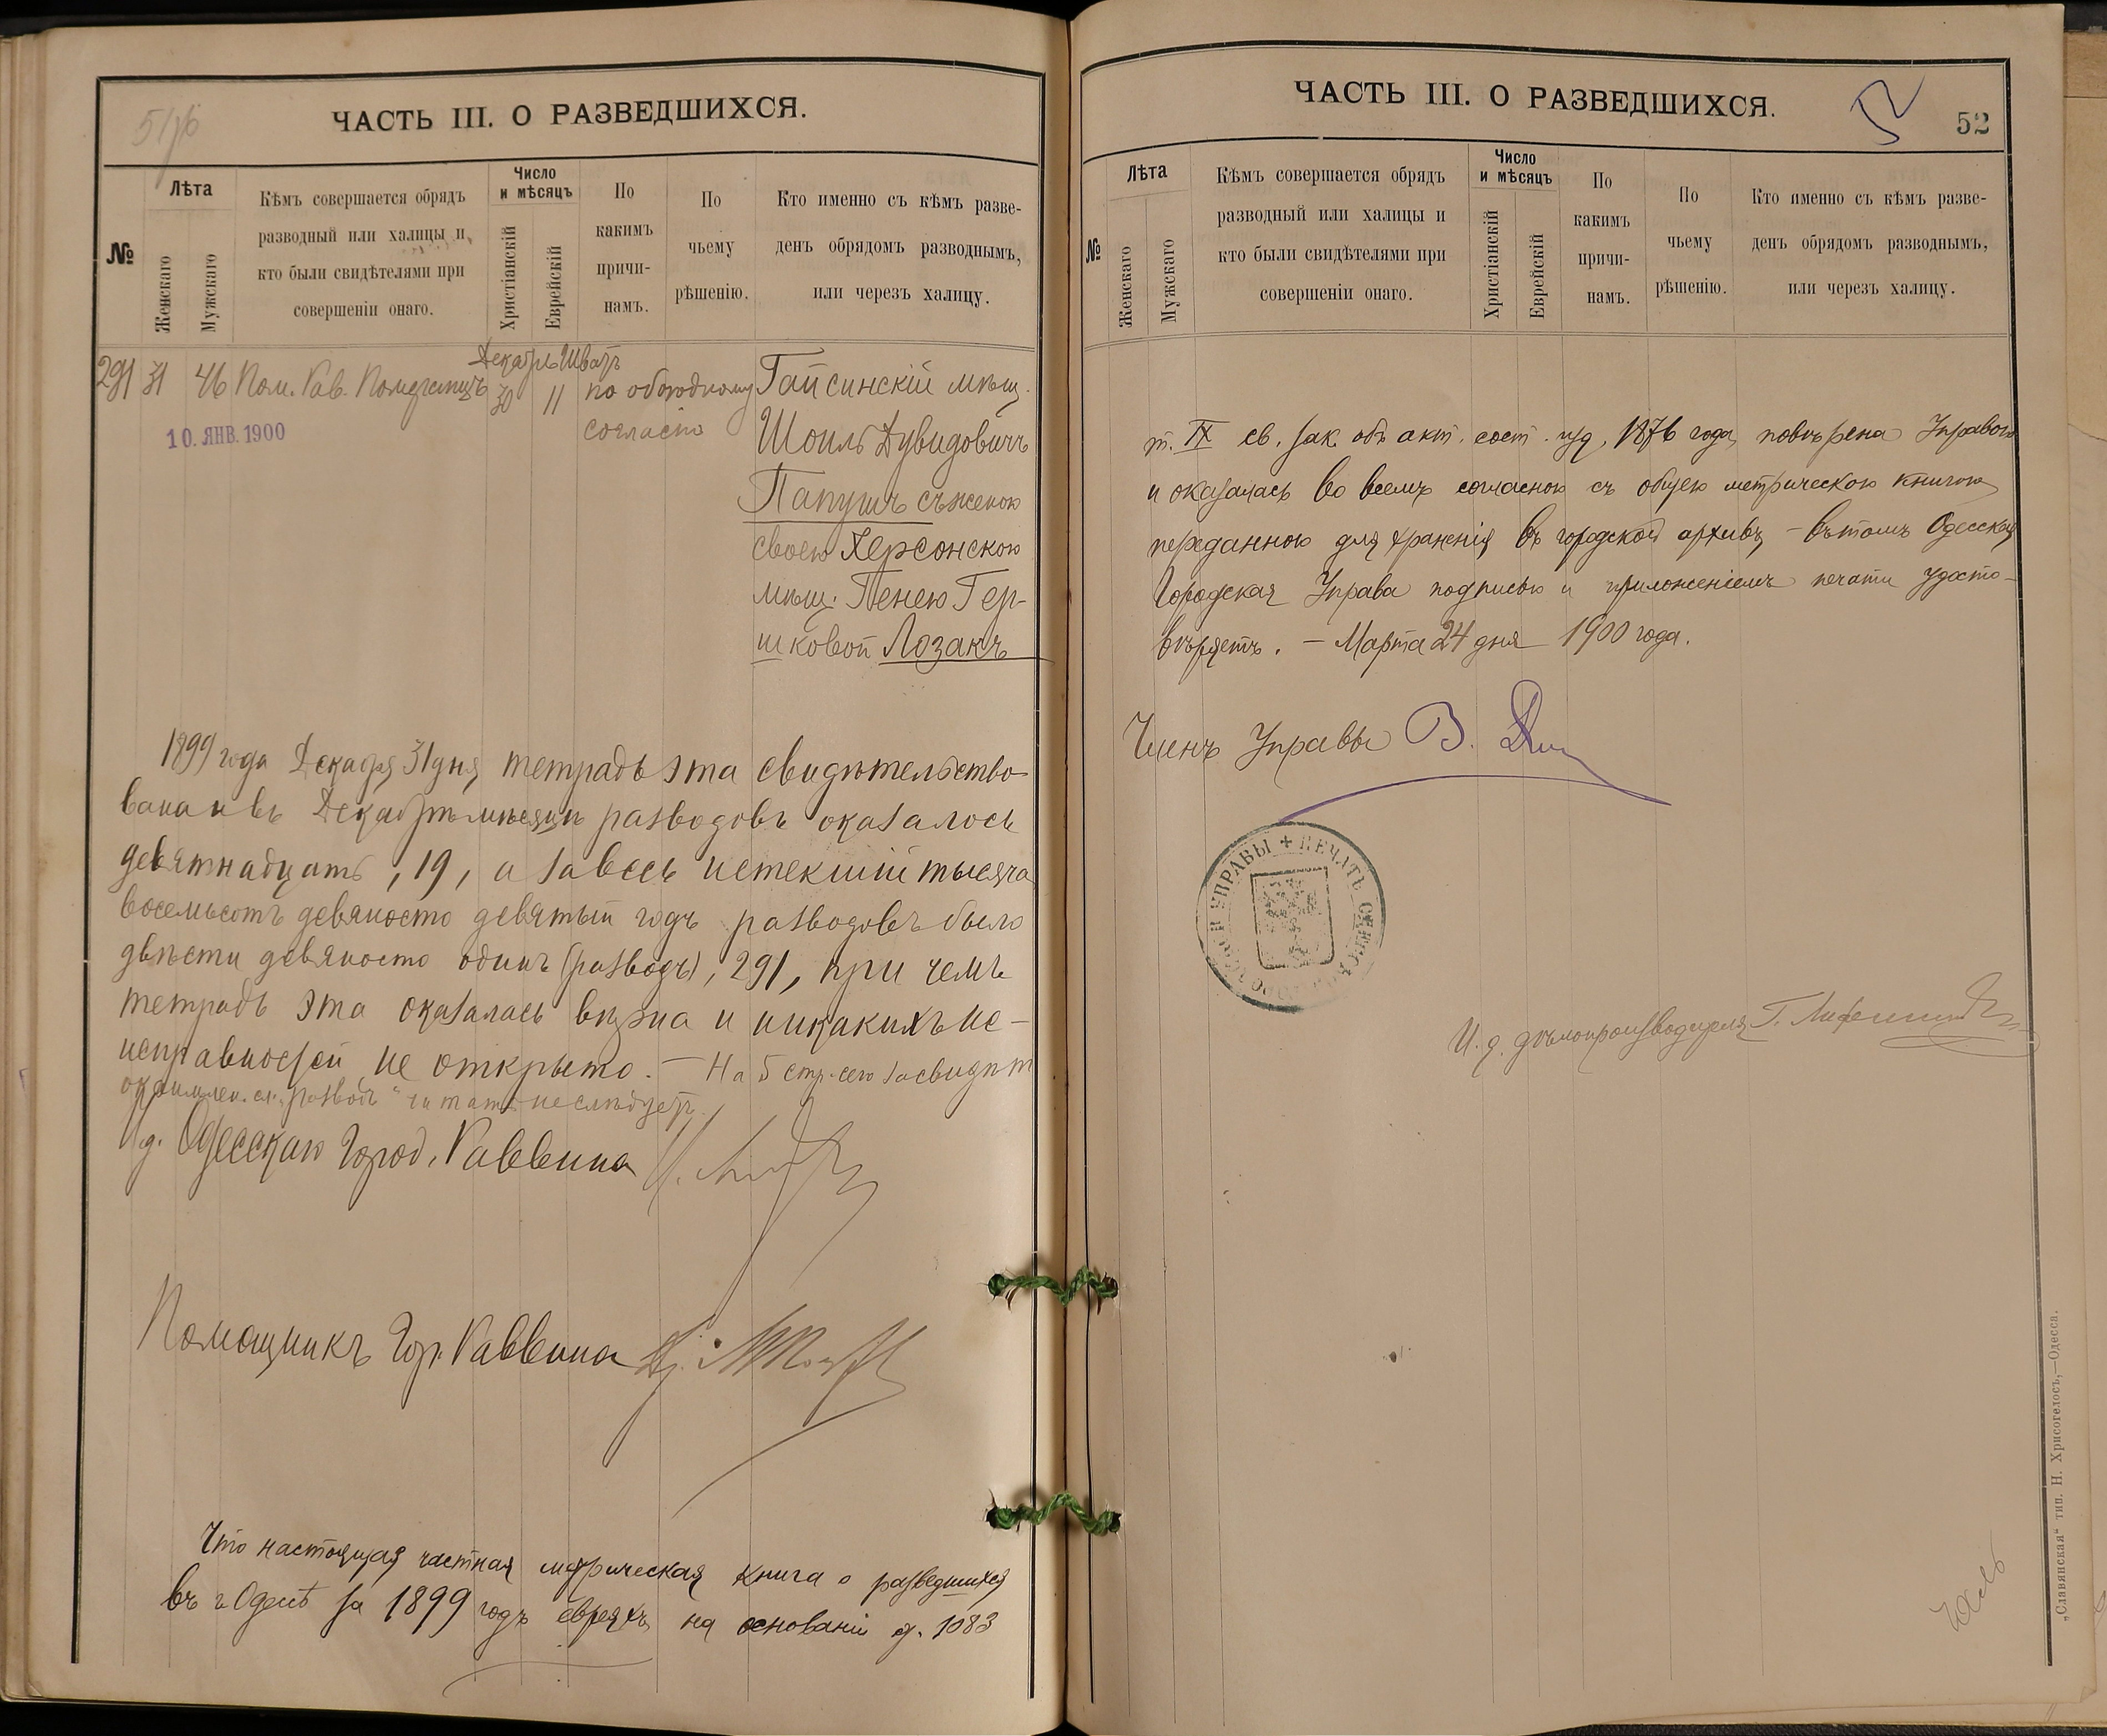 ЧАСТЬ III. О РАЗВЕДШИХСЯ.
№
Лѣта
Женскаго
Мужскаго
Кѣмъ совершается обрядъ
разводный или халицы и
кто были свидѣтелями при
совершеніи онаго.
Число
и мѣсяцъ
Христіанскій
Еврейскій
По
какимъ
причи-
намъ.
По
чьему
рѣшенію.
Кто именно съ кѣмъ разве-
денъ обрядомъ разводнымъ,
или черезъ халицу.
291 31 46 Пом. Рав. Померанцъ
Декабрь Шватъ
30 11
по обоюдному
согласію
10. ЯНВ. 1900
Гайсинскій мѣщ.
Шоиль Дувидовичъ
Папушъ съ женою
своею Херсонскою
мѣщ. Пенею Гер-
шковой Лозакъ
1899 года Декабря 31 дня тетрадь эта свидѣтельство-
вана и въ Декабрѣ мѣсяцѣ разводовъ оказалось
девятнадцать, 19, а за весь истекшій тысяча
восемьсотъ девяносто девятый годъ разводовъ было
двѣсти девяносто одинъ (разводъ), 291, при чемъ
тетрадь эта оказалась вѣрна и никакихъ не-
исправностей не открыто. — На 5 стр. сего засвидѣт
сл. „разводъ“ читать не слѣдуетъ.
И. д. Одесскаго Город. Раввина
Помощникъ Гор. Раввина
Что настоящая частная метрическая книга о разведшихся
въ г Одессѣ за 1899 годъ евреяхъ, на основаніи ст. 1083
ЧАСТЬ III. О РАЗВЕДШИХСЯ.
52
52
№
Лѣта
Женскаго
Мужскаго
Кѣмъ совершается обрядъ
разводный или халицы и
кто были свидѣтелями при
совершеніи онаго.
Число
и мѣсяцъ
Христіанскій
Еврейскій
По
какимъ
причи-
намъ.
По
чьему
рѣшенію.
Кто именно съ кѣмъ разве-
денъ обрядомъ разводнымъ,
или черезъ халицу.
т. IX св. зак. объ акт. сост. изд. 1876 года, повѣрена Управою
и оказалась во всемъ согласною съ общею метрическою книгою
переданною для храненія въ городской архивъ, — въ томъ Одесская
Городская Управа подписью и приложеніемъ печати удосто-
вѣряетъ. — Марта 24 дня 1900 года.
Членъ Управы В.
И. д. дѣлопроизводителя Г.
„Славянская“ тип. Н. Хрисогелосъ,—Одесса.